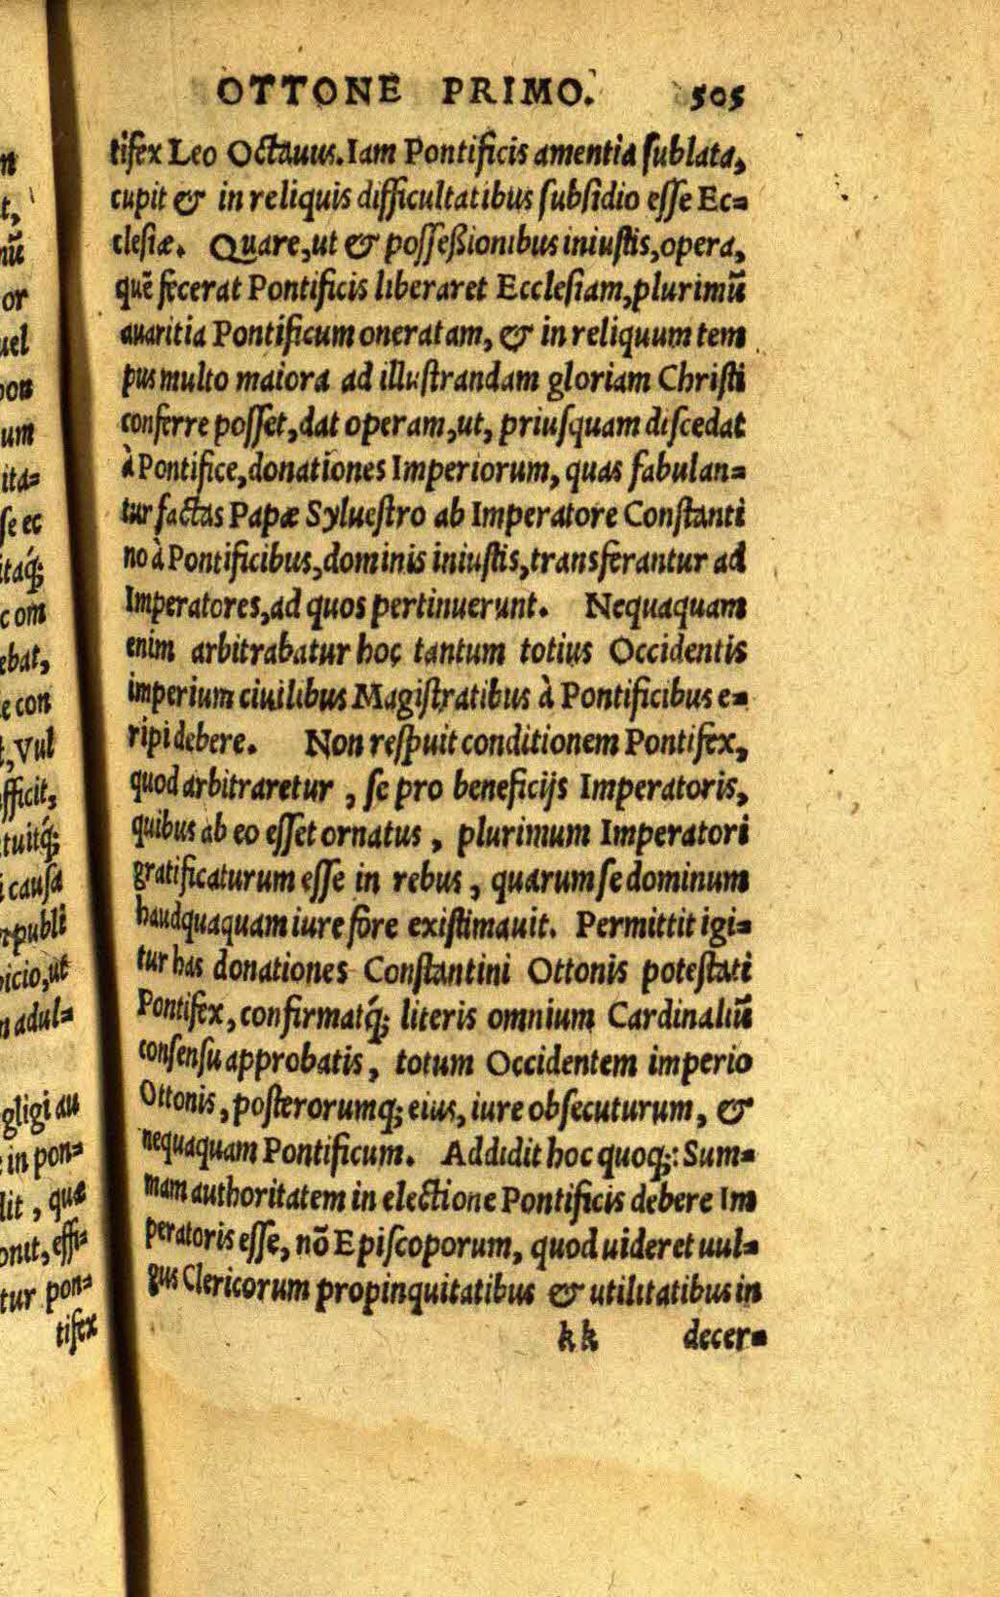 OTTONE PRIMO. 505
tifex Leo Octauus. Iam Pontificis amentia sublata,
cupit & in reliquis difficultatibus subsidio esse Ec=
clesiæ. Quare, ut & posseßionibus iniustis, opera,
quẽ fecerat Pontificis liberaret Ecclesiam, plurimũ
auaritia Pontificum oneratam, & in reliquum tem
pus multo maiora ad illustrandam gloriam Christi
conferre posset, dat operam, ut, priusquam discedat
à Pontifice, donationes Imperiorum, quas fabulan=
tur factas Papæ Syluestro ab Imperatore Constanti
no à Pontificibus, dominis iniustis, transferantur ad
Imperatores, ad quos pertinuerunt. Nequaquam
enim arbitrabatur hoc tantum totius Occidentis
imperium ciuilibus Magistratibus à Pontificibus e=
ripi debere. Non respuit conditionem Pontifex,
quod arbitraretur, se pro beneficijs Imperatoris,
quibus ab eo esset ornatus, plurimum Imperatori
gratificaturum esse in rebus, quarum se dominum
haudquaquam iure fore existimauit. Permittit igi=
tur has donationes Constantini Ottonis potestati
Pontifex, confirmatq́; literis omnium Cardinaliũ
consensu approbatis, totum Occidentem imperio
Ottonis, posterorumq; eius, iure obsecuturum, &
nequaquam Pontificum. Addidit hoc quoq;: Sum=
mam authoritatem in electione Pontificis debere Im
peratoris esse, nõ Episcoporum, quod uideret uul=
gus Clericorum propinquitatibus & utilitatibus in
kk decer=
n
t,
nũ
or
uel
pon
um
ita=
se ec
itáq;
com
ebat,
e con
t, Vul
fficit,
tuitq́;
i causa
publi
icio, ut
n adul=
gligi au
in pon=
lit, quæ
onit, effi=
tur pon=
tifex